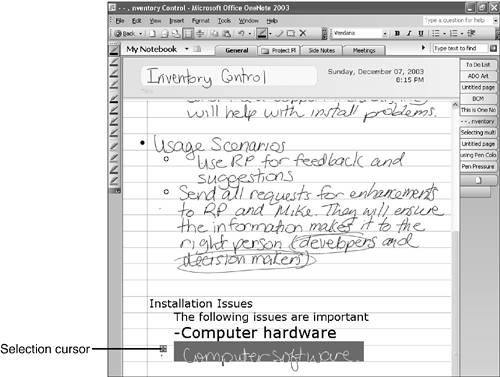 - - , nventory Control - Microsoft Office OneNote 2003
File Edit View Insert Format Tools Window Help
Type a question for help
Back
Verdana
B I U
My Notebook
General
Project Pl
Side Notes
Meetings
Type text to find
Inventory Control
Sunday, December 07, 2003
8:15 PM
will help with install problems.
• Usage Scenarios
○ Use RP for feedback and
suggestions
○ Send all requests for enhancements
to RP and Mike. They will ensure
the information makes it to the
right person (developers and
decision makers)
Installation Issues
The following issues are important
-Computer hardware
Computer software
Selection cursor
To Do List
ADO Art
Untitled page
BCM
This is One No
- - , nventory
Selecting multi
Untitled page
using Pen Colo
Pen Pressure